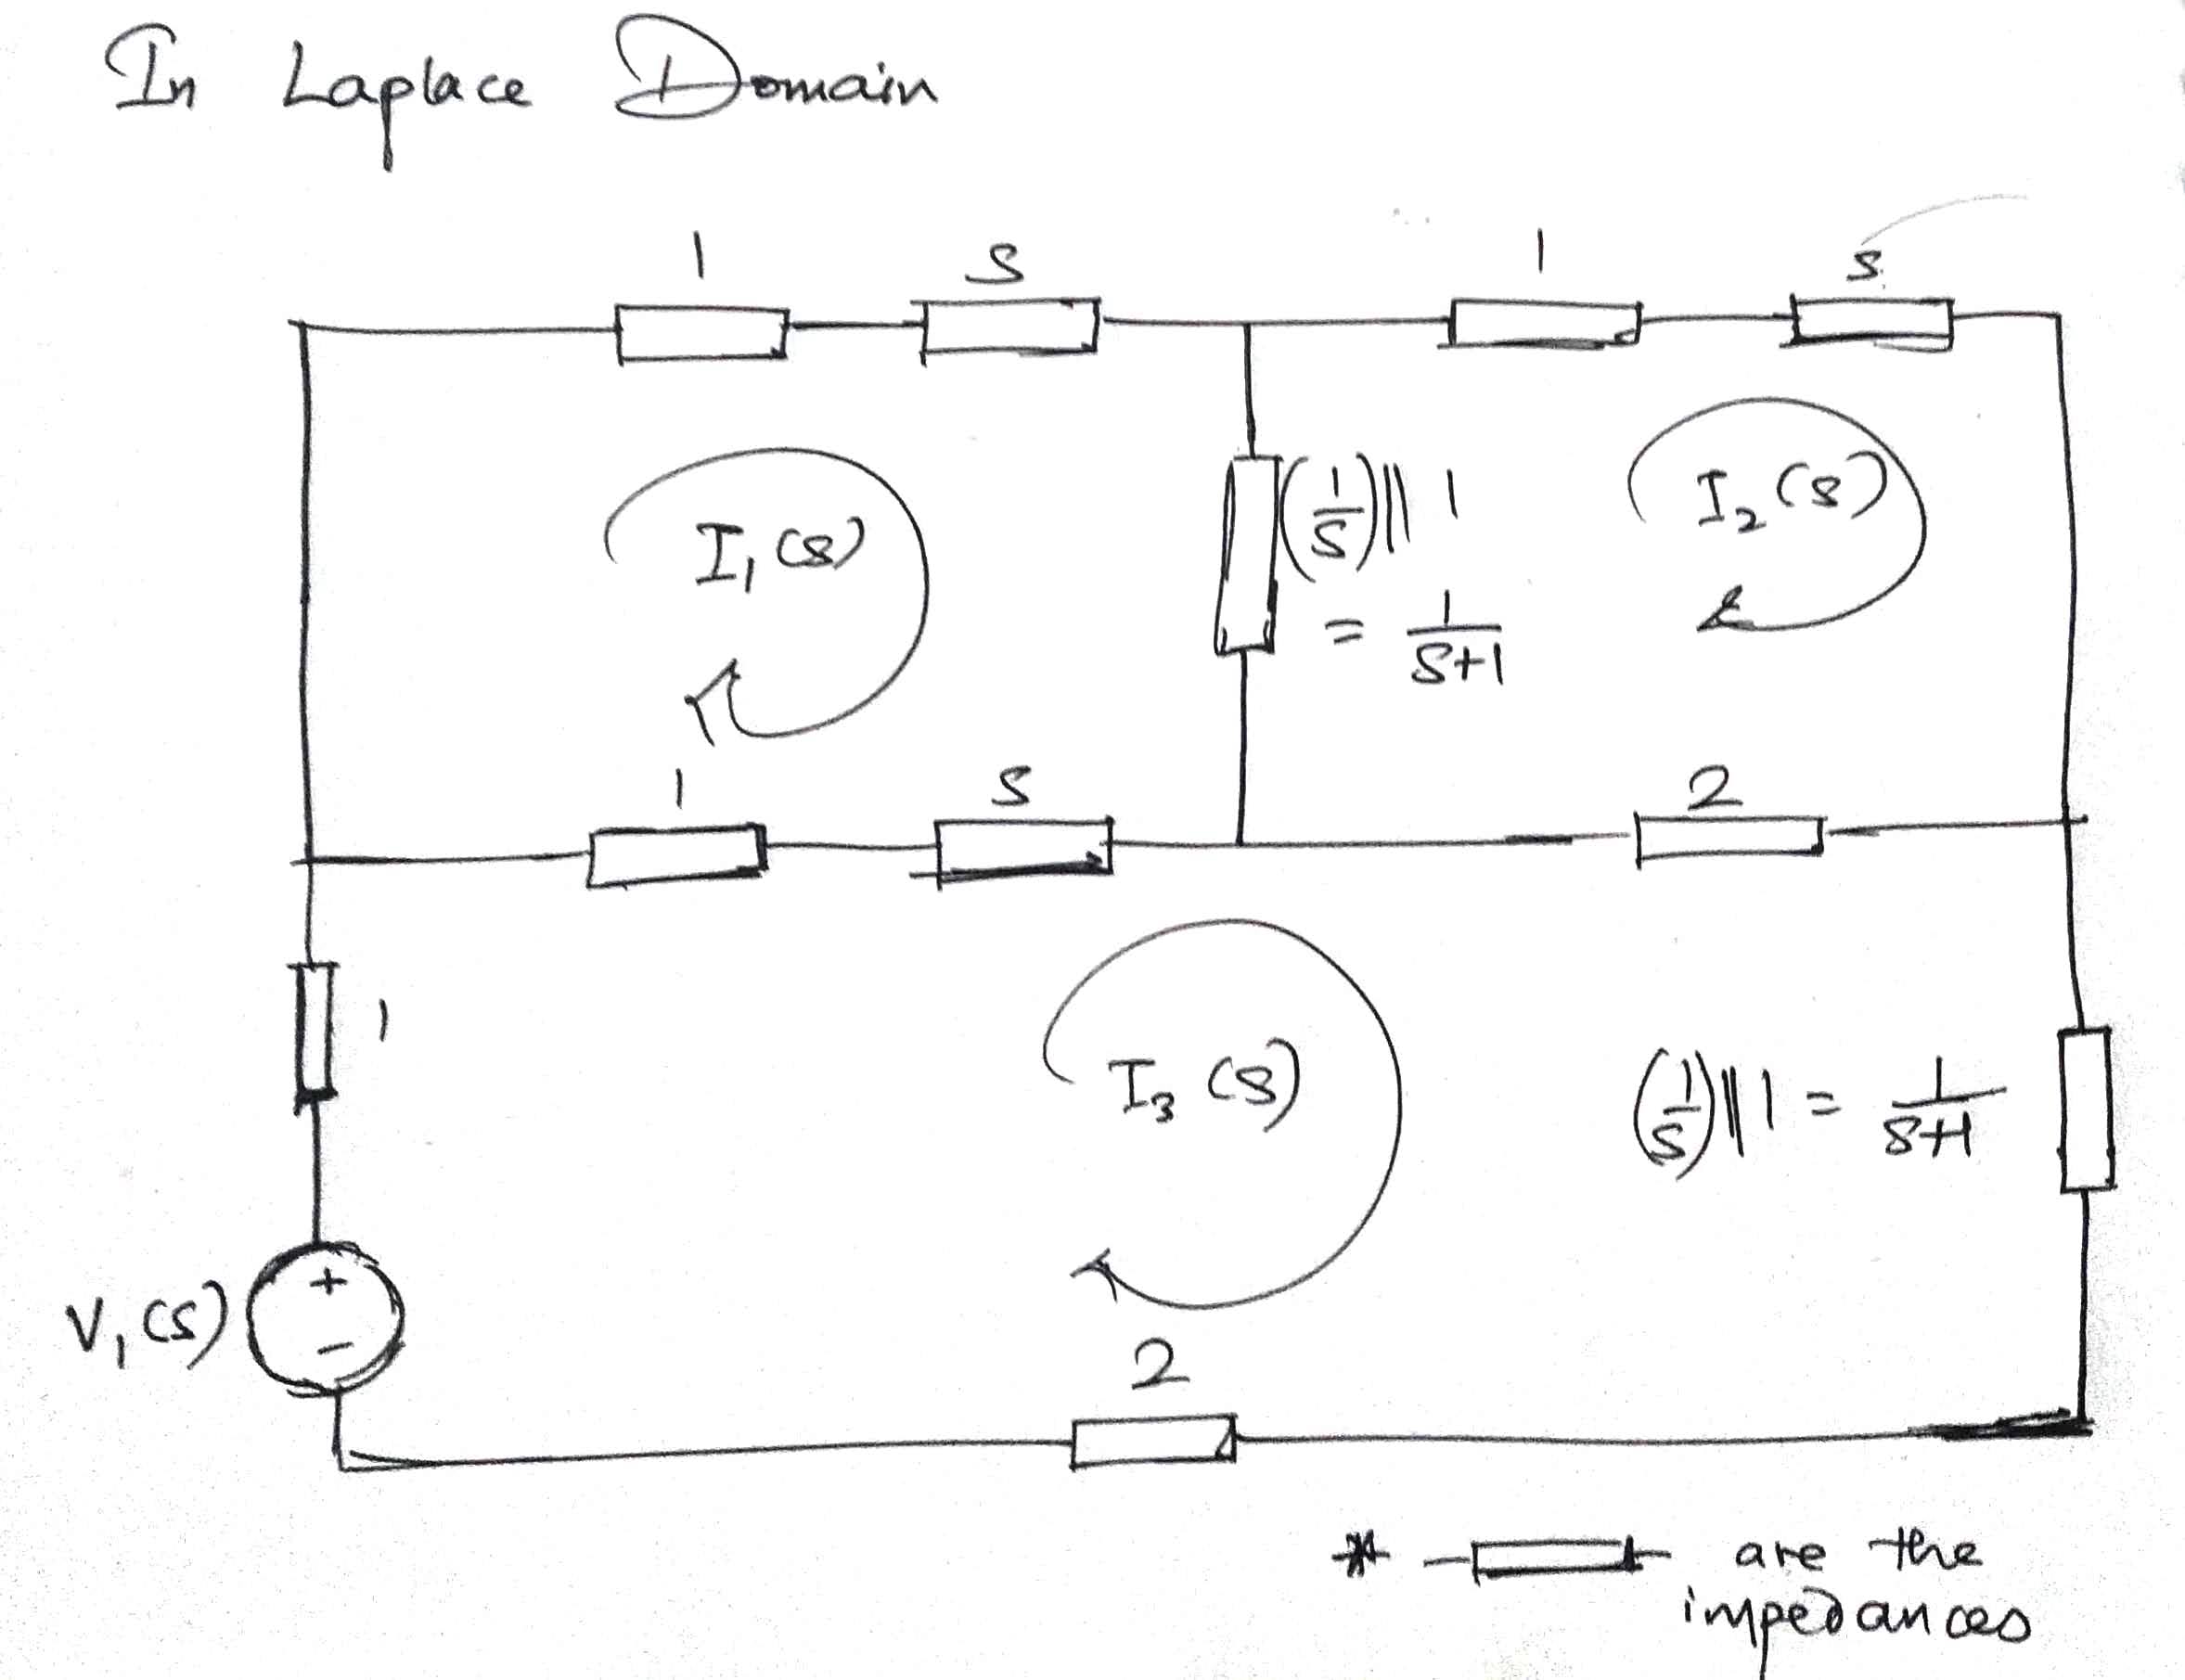 In Laplace Domain
1 S 1 S
I₁(s)
(1/s)||1
= 1/(s+1)
I₂(s)
1 S 2
1
I₃(s)
(1/s)||1 = 1/(s+1)
V₁(s)
+
−
2
* are the
impedances